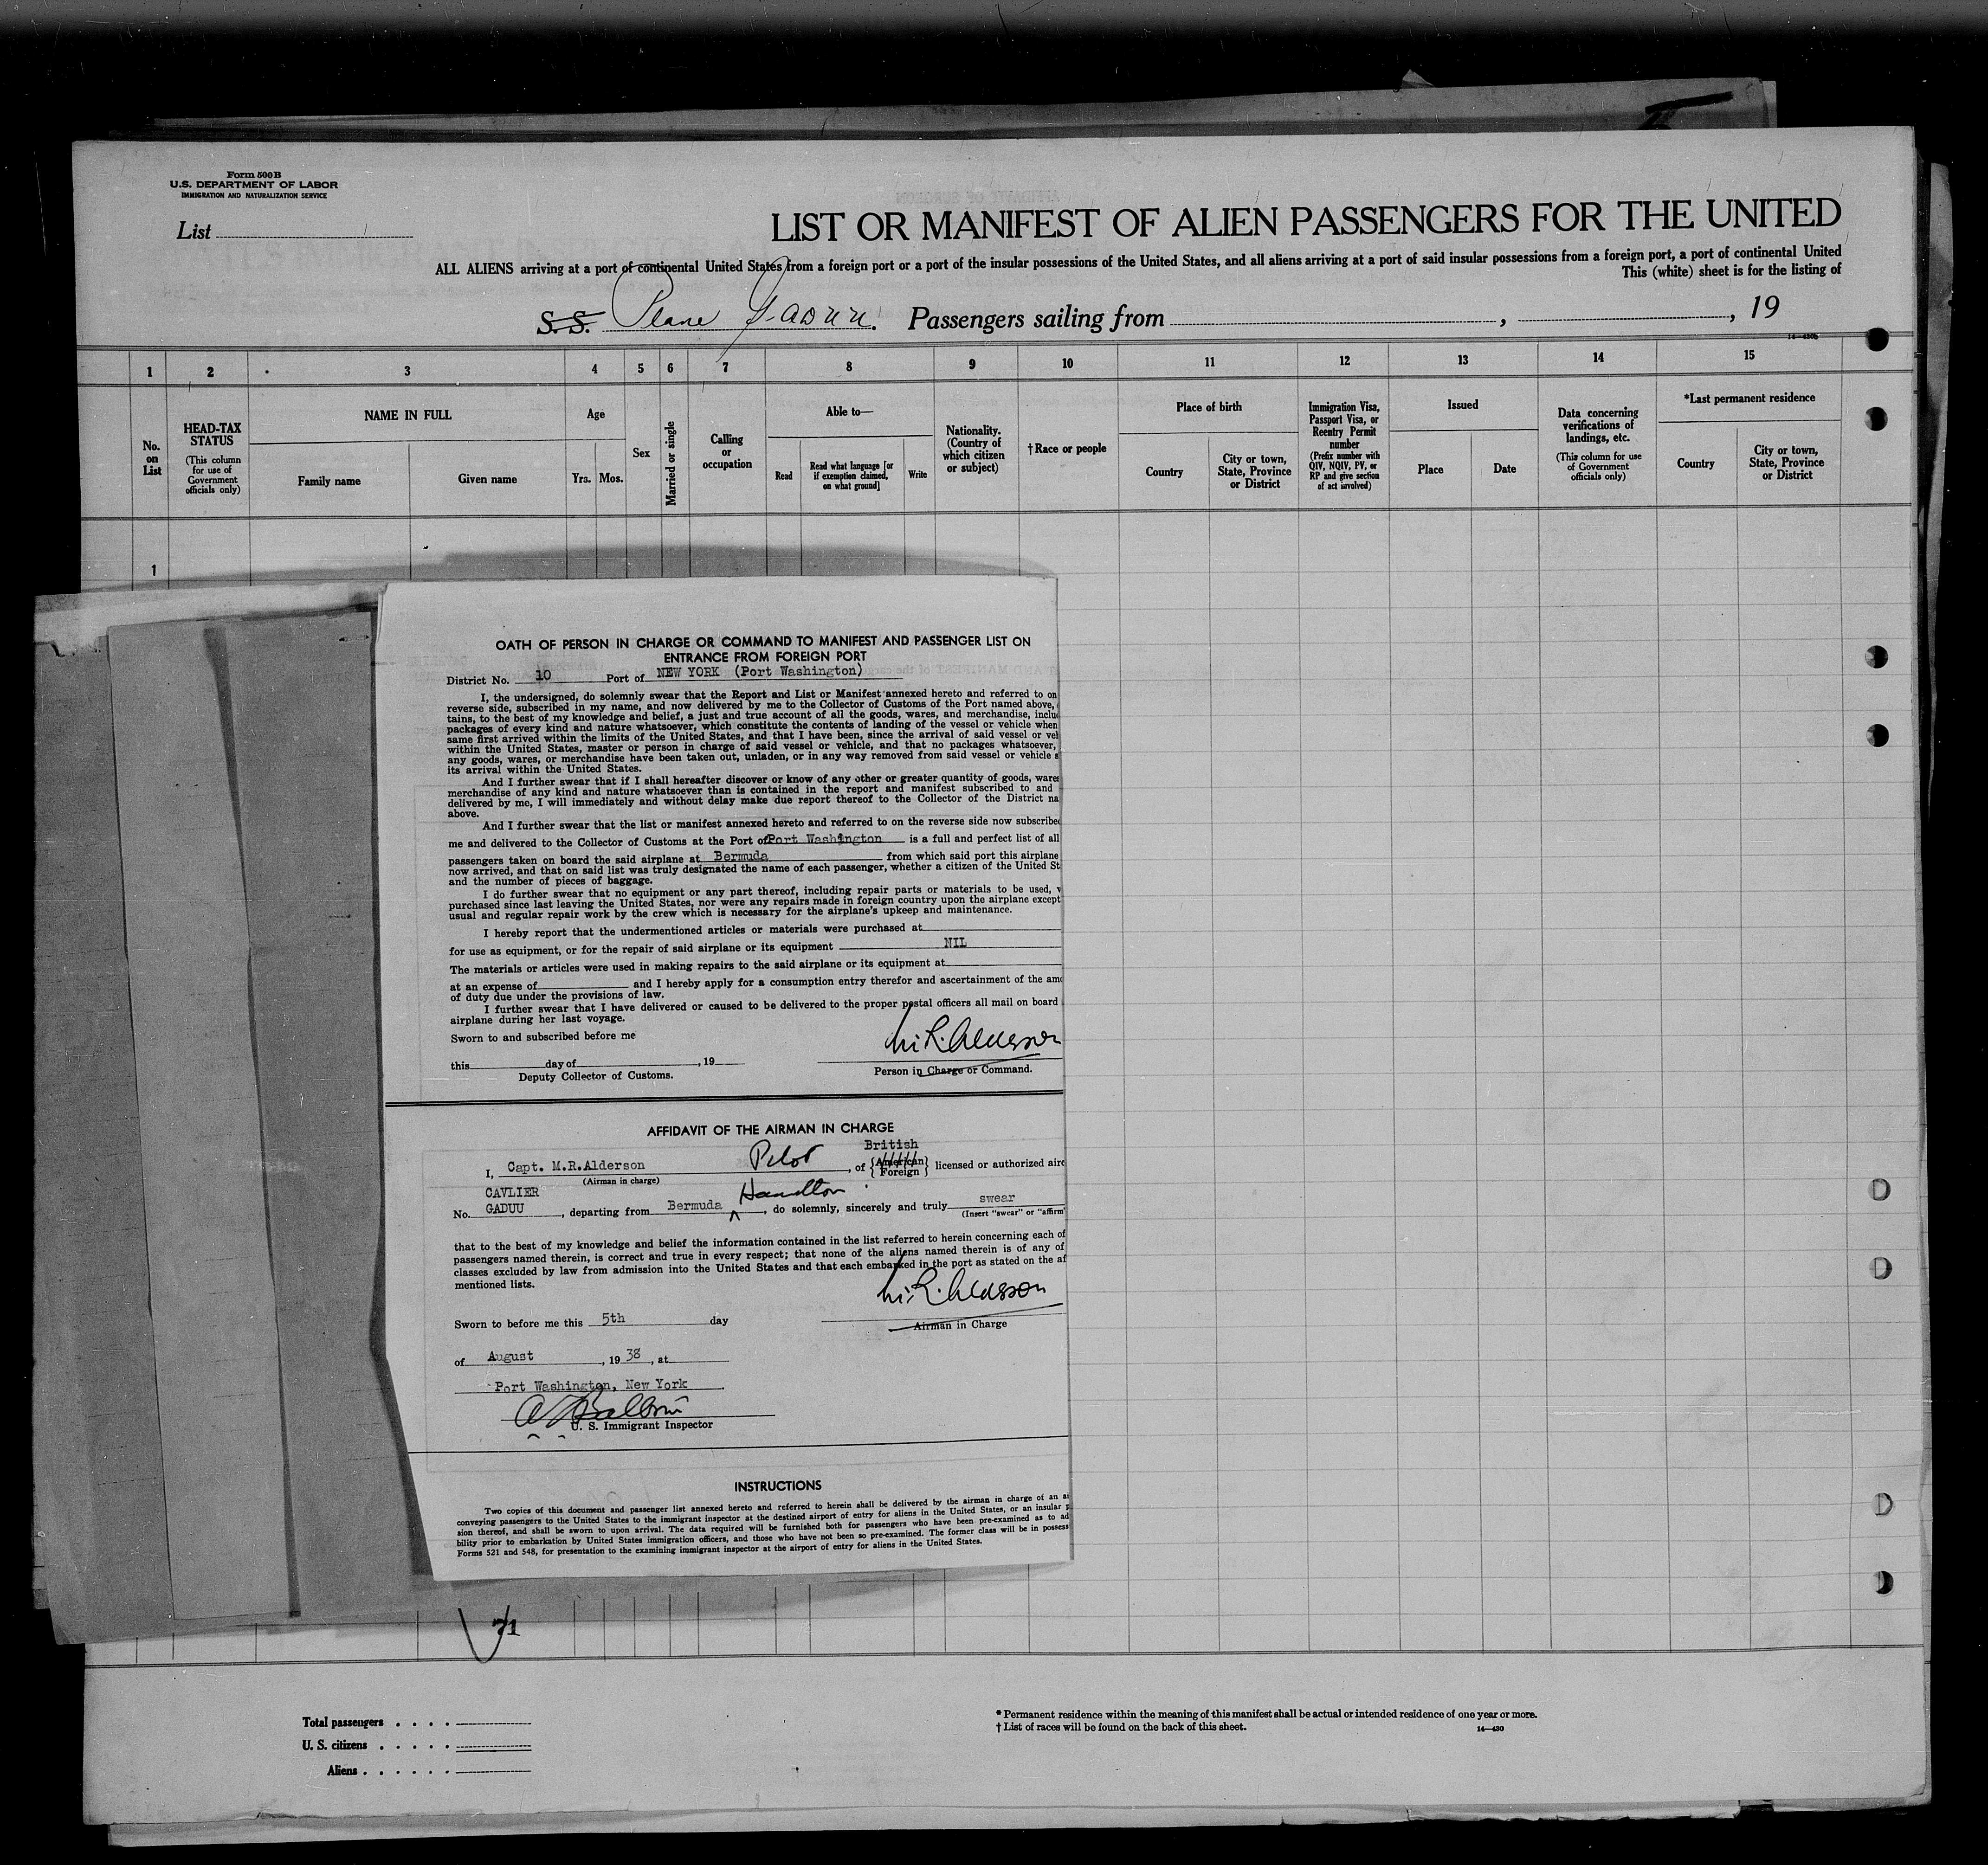 Form 500B
U.S. DEPARTMENT OF LABOR
IMMIGRATION AND NATURALIZATION SERVICE
List
LIST OR MANIFEST OF ALIEN PASSENGERS FOR THE UNITED
ALL ALIENS arriving at a port of continental United States from a foreign port or a port of the insular possessions of the United States, and all aliens arriving at a port of said insular possessions from a foreign port, a port of continental United
This (white) sheet is for the listing of
S.S. Plane Gaduu. Passengers sailing from , , 19
14—430b
1 2 3 4 5 6 7 8 9 10 11 12 13 14 15
No. on List
HEAD-TAX STATUS
(This column for use of Government officials only)
NAME IN FULL
Family name
Given name
Age
Yrs. Mos.
Sex
Married or single
Calling or occupation
Able to—
Read
Read what language [or if exemption claimed, on what ground]
Write
Nationality. (Country of which citizen or subject)
†Race or people
Place of birth
Country
City or town, State, Province or District
Immigration Visa, Passport Visa, or Reentry Permit number
(Prefix number with QIV, NQIV, PV, or RP and give section of act involved)
Issued
Place
Date
Data concerning verifications of landings, etc.
(This column for use of Government officials only)
*Last permanent residence
Country
City or town, State, Province or District
1
OATH OF PERSON IN CHARGE OR COMMAND TO MANIFEST AND PASSENGER LIST ON
ENTRANCE FROM FOREIGN PORT
District No. 10 Port of NEW YORK (Port Washington)
I, the undersigned, do solemnly swear that the Report and List or Manifest annexed hereto and referred to on
reverse side, subscribed in my name, and now delivered by me to the Collector of Customs of the Port named above,
tains, to the best of my knowledge and belief, a just and true account of all the goods, wares, and merchandise, inclu
packages of every kind and nature whatsoever, which constitute the contents of landing of the vessel or vehicle when
same first arrived within the limits of the United States, and that I have been, since the arrival of said vessel or veh
within the United States, master or person in charge of said vessel or vehicle, and that no packages whatsoever,
any goods, wares, or merchandise have been taken out, unladen, or in any way removed from said vessel or vehicle s
its arrival within the United States.
And I further swear that if I shall hereafter discover or know of any other or greater quantity of goods, wares
merchandise of any kind and nature whatsoever than is contained in the report and manifest subscribed to and
delivered by me, I will immediately and without delay make due report thereof to the Collector of the District na
above.
And I further swear that the list or manifest annexed hereto and referred to on the reverse side now subscribed
me and delivered to the Collector of Customs at the Port of Port Washington is a full and perfect list of all
passengers taken on board the said airplane at Bermuda from which said port this airplane
now arrived, and that on said list was truly designated the name of each passenger, whether a citizen of the United St
and the number of pieces of baggage.
I do further swear that no equipment or any part thereof, including repair parts or materials to be used, w
purchased since last leaving the United States, nor were any repairs made in foreign country upon the airplane except
usual and regular repair work by the crew which is necessary for the airplane's upkeep and maintenance.
I hereby report that the undermentioned articles or materials were purchased at
for use as equipment, or for the repair of said airplane or its equipment NIL
The materials or articles were used in making repairs to the said airplane or its equipment at
at an expense of and I hereby apply for a consumption entry therefor and ascertainment of the amo
of duty due under the provisions of law.
I further swear that I have delivered or caused to be delivered to the proper postal officers all mail on board
airplane during her last voyage.
Sworn to and subscribed before me
M.R. Alderson
this day of , 19
Deputy Collector of Customs.
Person in Charge or Command.
AFFIDAVIT OF THE AIRMAN IN CHARGE
British
I, Capt. M.R.Alderson Pilot, of {American Foreign} licensed or authorized airc
(Airman in charge)
CAVLIER Hamilton
No. GADUU, departing from Bermuda, do solemnly, sincerely and truly swear
(Insert "swear" or "affirm"
that to the best of my knowledge and belief the information contained in the list referred to herein concerning each of
passengers named therein, is correct and true in every respect; that none of the aliens named therein is of any of
classes excluded by law from admission into the United States and that each embarked in the port as stated on the af
mentioned lists.
M.R. Alderson
Sworn to before me this 5th day
Airman in Charge
of August, 19 38, at
Port Washington, New York
U. S. Immigrant Inspector
INSTRUCTIONS
Two copies of this document and passenger list annexed hereto and referred to herein shall be delivered by the airman in charge of an ai
conveying passengers to the United States to the immigrant inspector at the destined airport of entry for aliens in the United States, or an insular p
sion thereof, and shall be sworn to upon arrival. The data required will be furnished both for passengers who have been pre-examined as to ad
bility prior to embarkation by United States immigration officers, and those who have not been so pre-examined. The former class will be in possess
Forms 521 and 548, for presentation to the examining immigrant inspector at the airport of entry for aliens in the United States.
71
Total passengers . . . .
U. S. citizens . . . . .
Aliens . . . . . .
* Permanent residence within the meaning of this manifest shall be actual or intended residence of one year or more.
† List of races will be found on the back of this sheet.
14—430